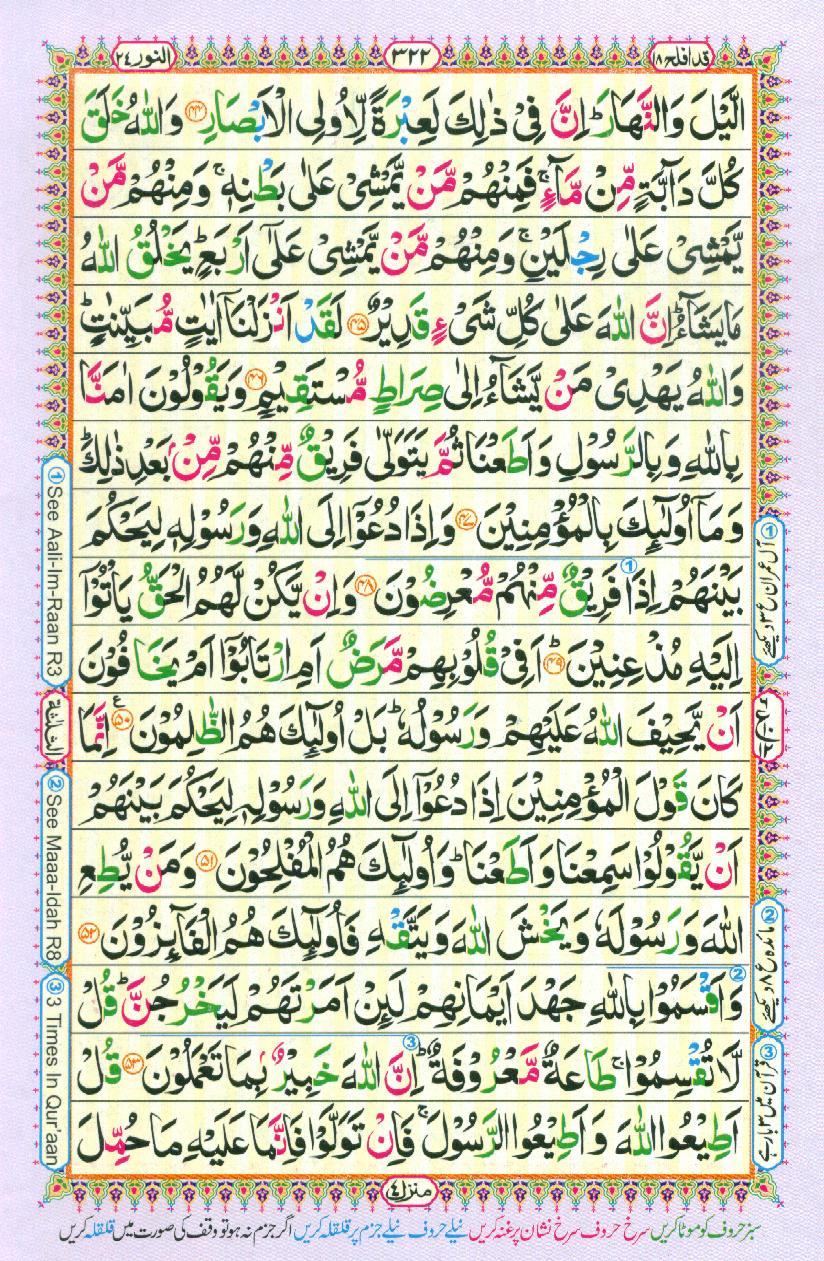 قد افلح ١٨
٣٢٢
النور ٢٤
الَّیۡلَ وَالنَّهَارَ ؕ اِنَّ فِیۡ ذٰلِكَ لَعِبۡرَةً لِّاُولِی الۡاَبۡصَارِ ﴿۴۴﴾ وَاللّٰهُ خَلَقَ
كُلَّ دَآبَّةٍ مِّنۡ مَّآءٍ ۚ فَمِنۡهُمۡ مَّنۡ یَّمۡشِیۡ عَلٰی بَطۡنِهٖ ۚ وَمِنۡهُمۡ مَّنۡ
یَّمۡشِیۡ عَلٰی رِجۡلَیۡنِ ۚ وَمِنۡهُمۡ مَّنۡ یَّمۡشِیۡ عَلٰۤی اَرۡبَعٍ ؕ یَخۡلُقُ اللّٰهُ
مَا یَشَآءُ ؕ اِنَّ اللّٰهَ عَلٰی كُلِّ شَیۡءٍ قَدِیۡرٌ ﴿۴۵﴾ لَقَدۡ اَنۡزَلۡنَاۤ اٰیٰتٍ مُّبَیِّنٰتٍ ؕ
وَاللّٰهُ یَهۡدِیۡ مَنۡ یَّشَآءُ اِلٰی صِرَاطٍ مُّسۡتَقِیۡمٍ ﴿۴۶﴾ وَیَقُوۡلُوۡنَ اٰمَنَّا
بِاللّٰهِ وَبِالرَّسُوۡلِ وَاَطَعۡنَا ثُمَّ یَتَوَلّٰی فَرِیۡقٌ مِّنۡهُمۡ مِّنۡۢ بَعۡدِ ذٰلِكَ ؕ
وَمَاۤ اُولٰٓئِكَ بِالۡمُؤۡمِنِیۡنَ ﴿۴۷﴾ وَاِذَا دُعُوۡۤا اِلَی اللّٰهِ وَرَسُوۡلِهٖ لِیَحۡكُمَ
بَیۡنَهُمۡ اِذَا فَرِیۡقٌ مِّنۡهُمۡ مُّعۡرِضُوۡنَ ﴿۴۸﴾ وَاِنۡ یَّكُنۡ لَّهُمُ الۡحَقُّ یَاۡتُوۡۤا
اِلَیۡهِ مُذۡعِنِیۡنَ ﴿۴۹﴾ اَفِیۡ قُلُوۡبِهِمۡ مَّرَضٌ اَمِ ارۡتَابُوۡۤا اَمۡ یَخَافُوۡنَ
اَنۡ یَّحِیۡفَ اللّٰهُ عَلَیۡهِمۡ وَرَسُوۡلُهٗ ؕ بَلۡ اُولٰٓئِكَ هُمُ الظّٰلِمُوۡنَ ﴿۵۰﴾ اِنَّمَا
كَانَ قَوۡلَ الۡمُؤۡمِنِیۡنَ اِذَا دُعُوۡۤا اِلَی اللّٰهِ وَرَسُوۡلِهٖ لِیَحۡكُمَ بَیۡنَهُمۡ
اَنۡ یَّقُوۡلُوۡا سَمِعۡنَا وَاَطَعۡنَا ؕ وَاُولٰٓئِكَ هُمُ الۡمُفۡلِحُوۡنَ ﴿۵۱﴾ وَمَنۡ یُّطِعِ
اللّٰهَ وَرَسُوۡلَهٗ وَیَخۡشَ اللّٰهَ وَیَتَّقۡهِ فَاُولٰٓئِكَ هُمُ الۡفَآئِزُوۡنَ ﴿۵۲﴾
وَاَقۡسَمُوۡا بِاللّٰهِ جَهۡدَ اَیۡمَانِهِمۡ لَئِنۡ اَمَرۡتَهُمۡ لَیَخۡرُجُنَّ ؕ قُلۡ
لَّا تُقۡسِمُوۡا ۚ طَاعَةٌ مَّعۡرُوۡفَةٌ ؕ اِنَّ اللّٰهَ خَبِیۡرٌۢ بِمَا تَعۡمَلُوۡنَ ﴿۵۳﴾ قُلۡ
اَطِیۡعُوا اللّٰهَ وَاَطِیۡعُوا الرَّسُوۡلَ ۚ فَاِنۡ تَوَلَّوۡا فَاِنَّمَا عَلَیۡهِ مَا حُمِّلَ
① آل عمران ع ۳ دیکھئے
② مائدہ ع ۸ دیکھئے
③ قرآن میں ۳ بار ہے
① See Aali-Im-Raan R3
الثلثة
② See Maaa-Idah R8
③ 3 Times In Qur'aan
منزل ٤
سبز حروف کو موٹا کریں سرخ حروف سرخ نشان پر غنہ کریں نیلے حروف نیلے جزم پر قلقلہ کریں اگر جزم نہ ہو تو وقف کی صورت میں قلقلہ کریں